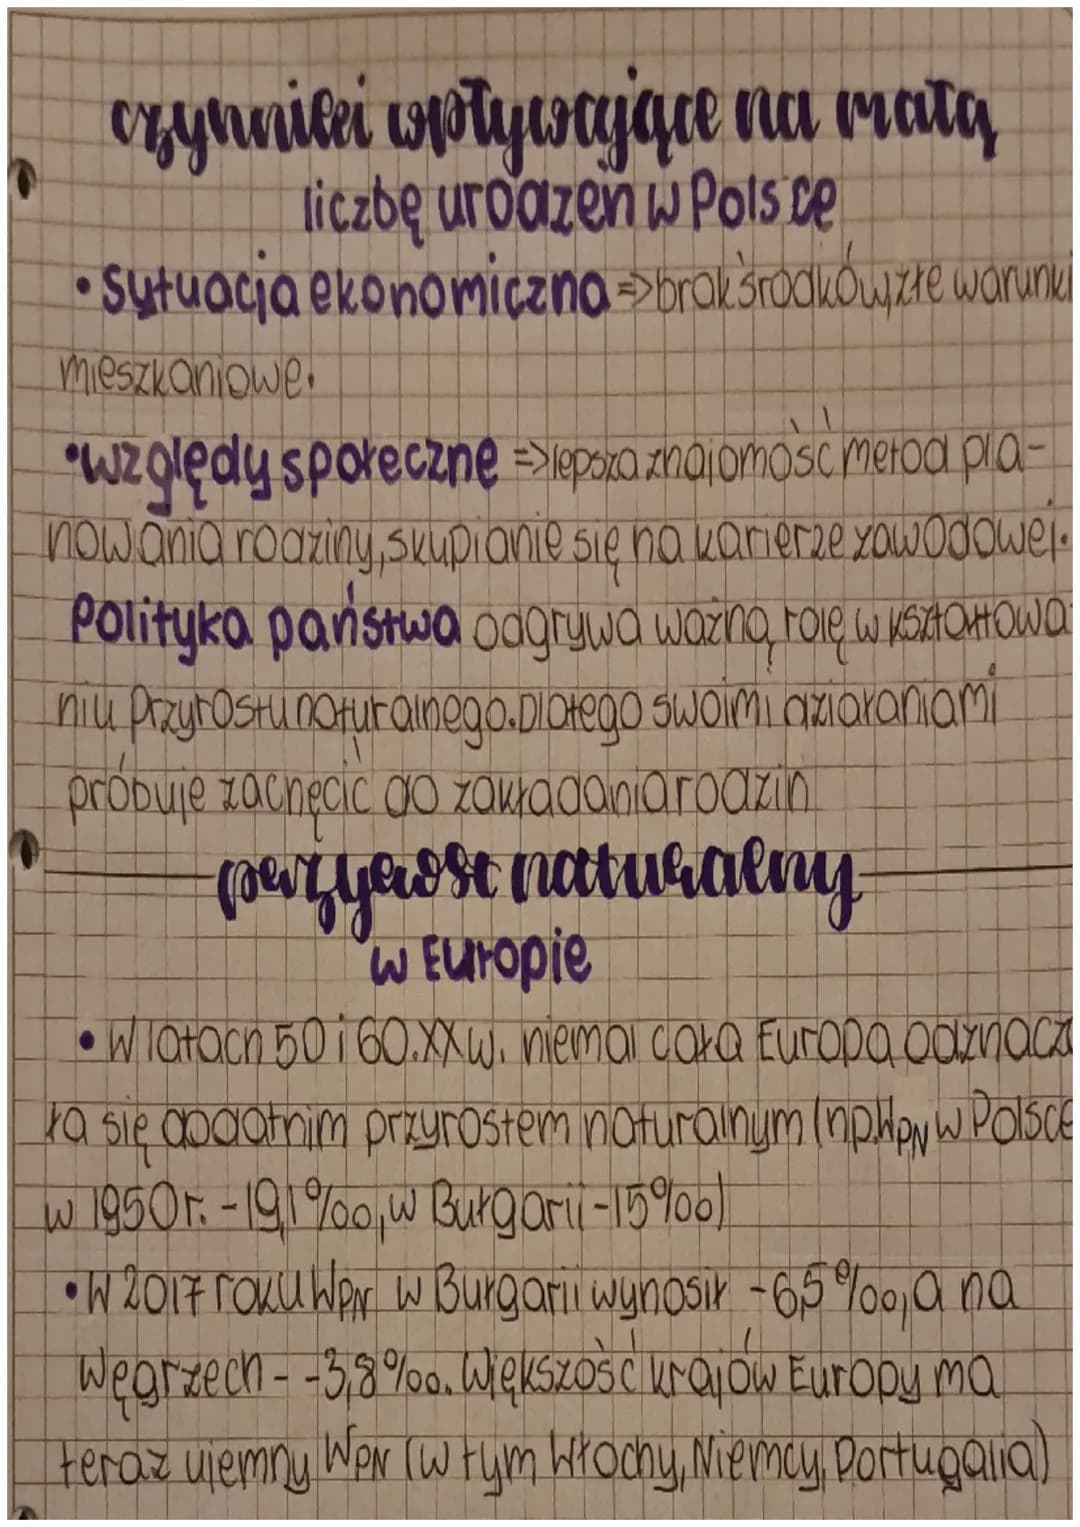 czynniki wpływające na małą
liczbę urodzeń w Polsce
• sytuacja ekonomiczna => brak środków, złe warunki
mieszkaniowe.
• względy społeczne => lepsza znajomość metod pla-
nowania rodziny, skupianie się na karierze zawodowej.
Polityka państwa odgrywa ważną rolę w kształtowa-
niu przyrostu naturalnego. Dlatego swoimi działaniami
próbuje zachęcić do zakładania rodzin
przyrost naturalny
w Europie
• W latach 50 i 60. XX w. niemal cała Europa odznacza
ła się dodatnim przyrostem naturalnym (np. WPN w Polsce
w 1950 r. - 19,1‰, w Bułgarii - 15‰)
• W 2017 roku WPN w Bułgarii wynosił -6,5‰, a na
Węgrzech - -3,8‰. Większość krajów Europy ma
teraz ujemny WPN (w tym Włochy, Niemcy, Portugalia)